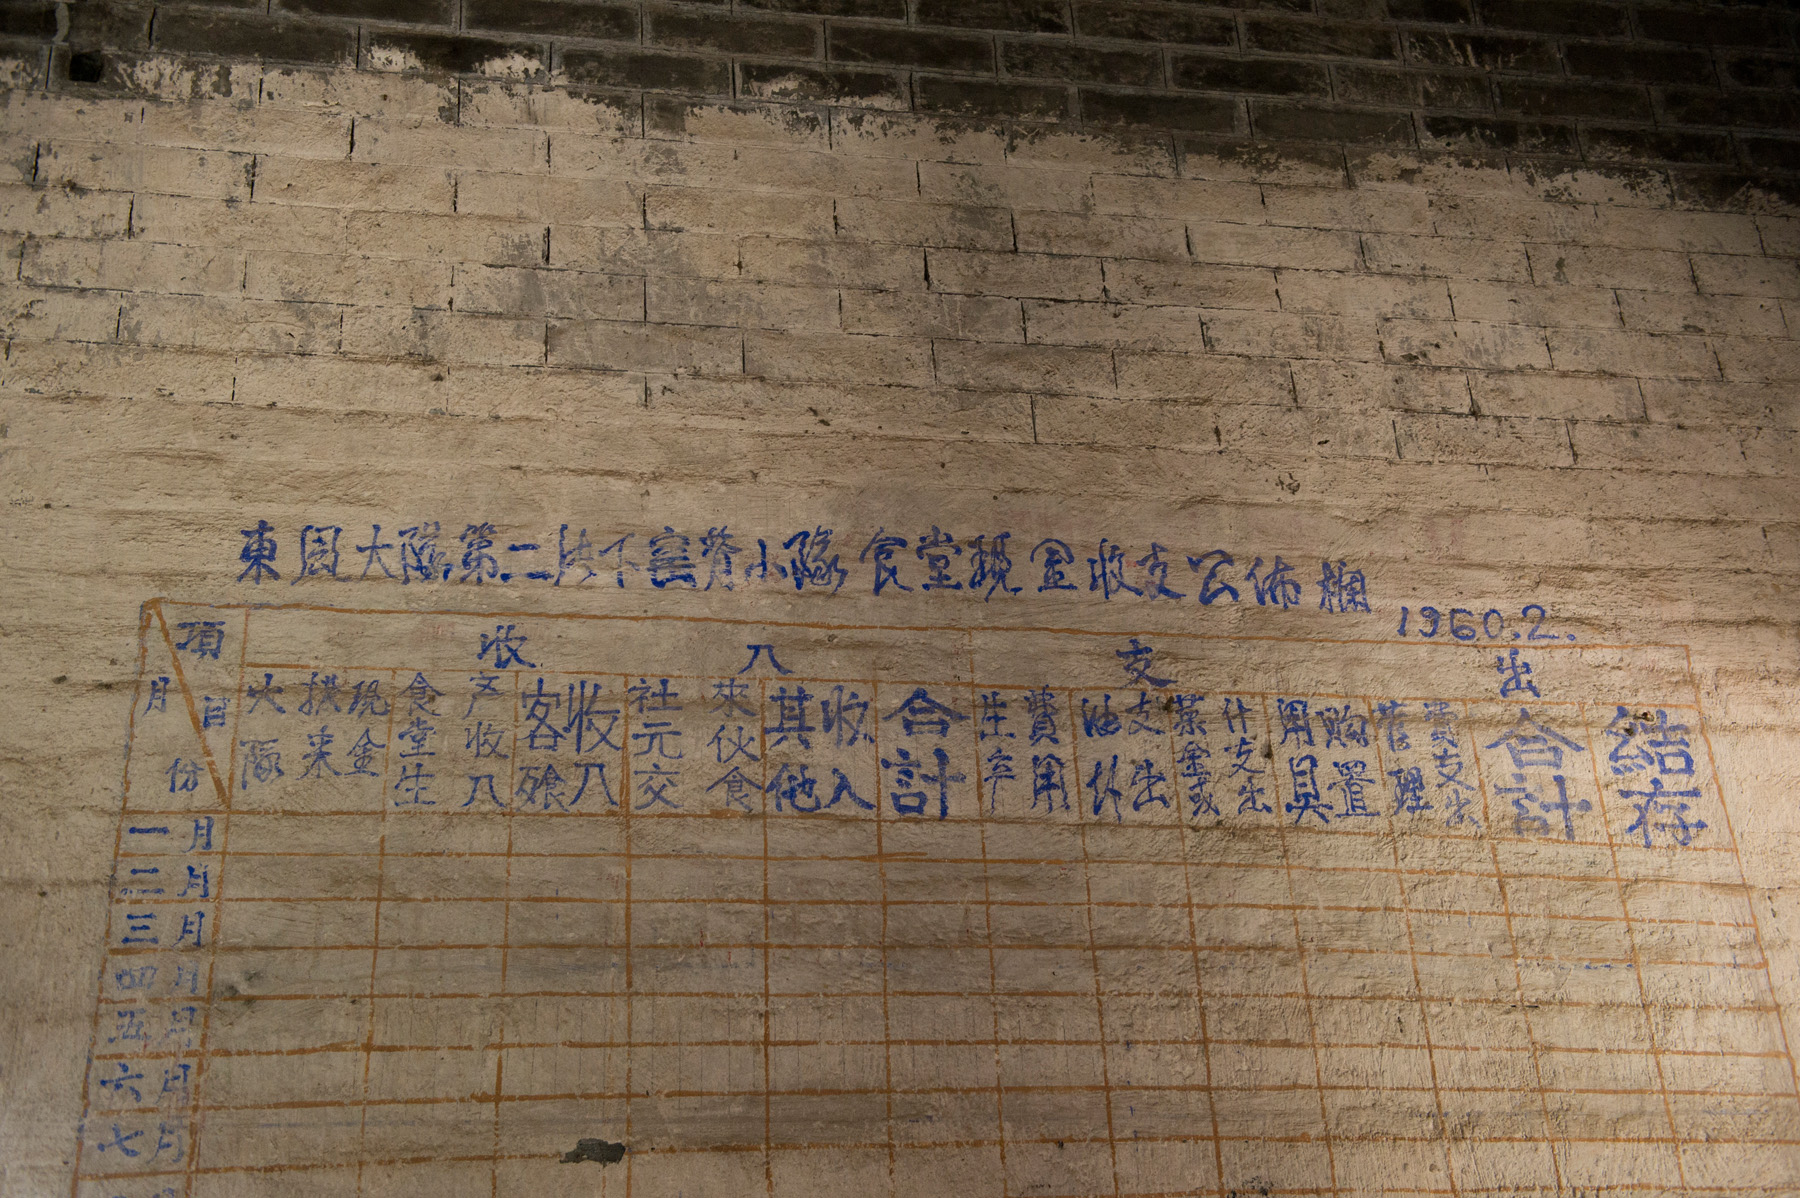 東風大隊第二 下 小隊食堂現金收支公佈欄
1960.2.
項目 月份
收入
支出
大隊撥来現金
食堂生产收入
客飧收入
社元交來伙食
其他收入
合計
費用
油 支出
菜金或什支出
用具购置
管理費支出
合計
結存
一月
二月
三月
四月
五月
六月
七月